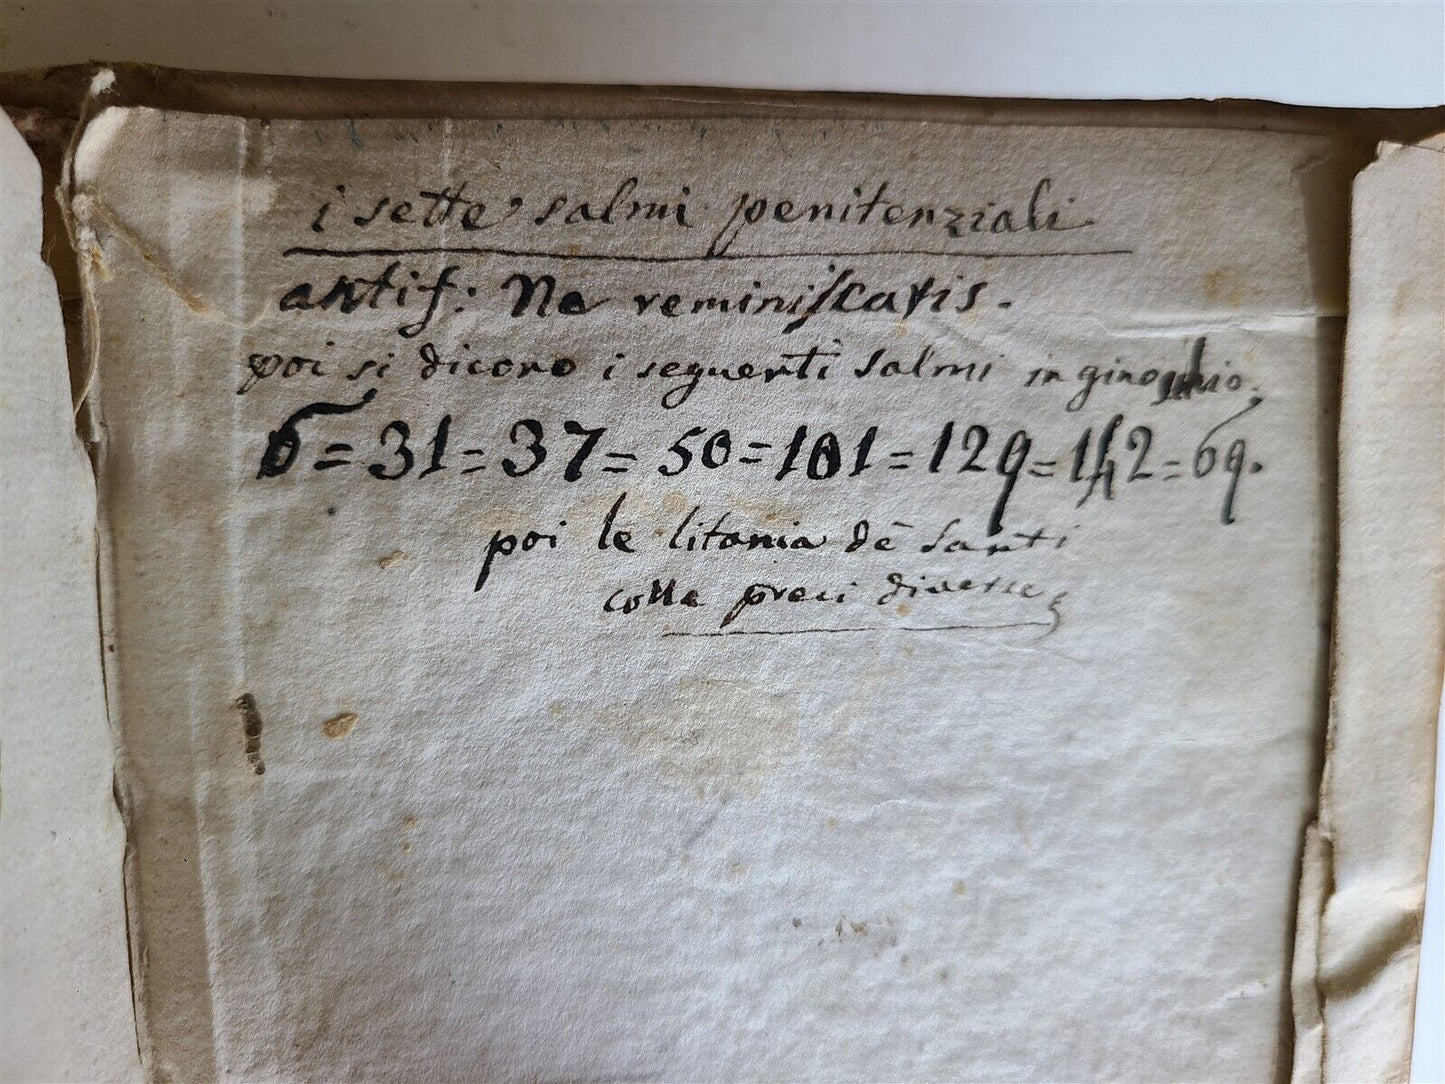 i sette salmi penitenziali
antif: Ne reminiscaris.
poi si dicono i seguenti salmi in ginochio.
6 = 31 = 37 = 50 = 101 = 129 = 142 = 69.
poi le litania dē Santi
colle preci diverse